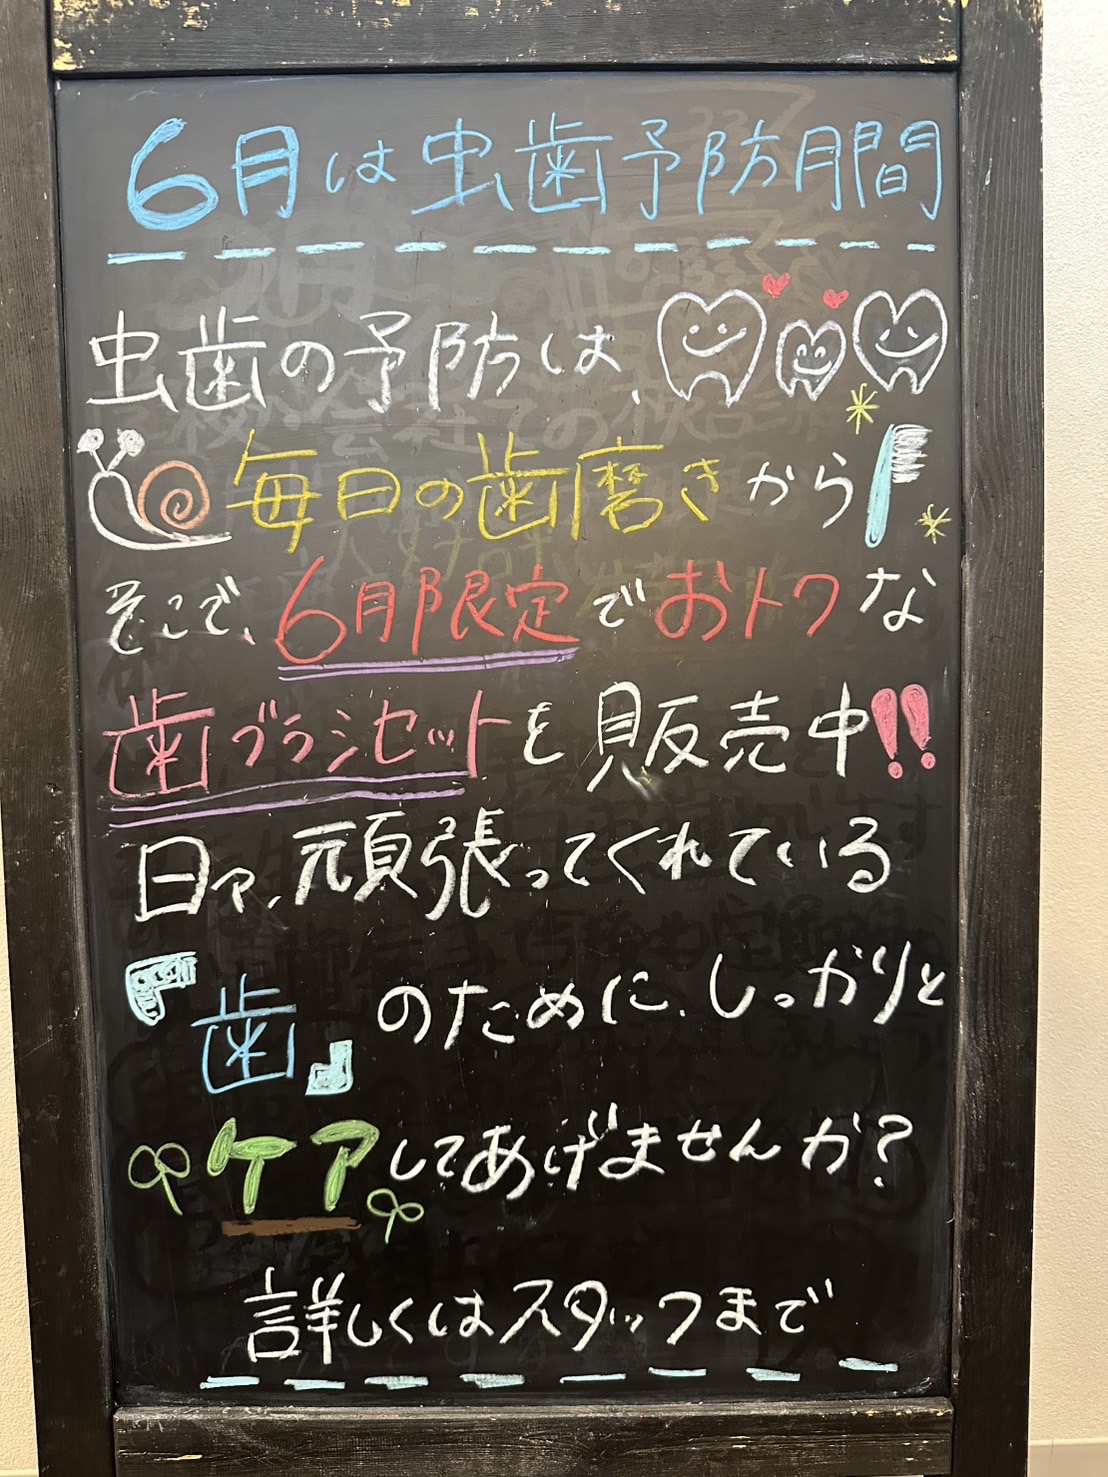 6月は虫歯予防月間
虫歯の予防は、
毎日の歯磨きから
そこで、6月限定でおトクな
歯ブラシセットを販売中!!
日々、頑張ってくれている
『歯』のために、しっかりと
ケアしてあげませんか?
詳しくはスタッフまで